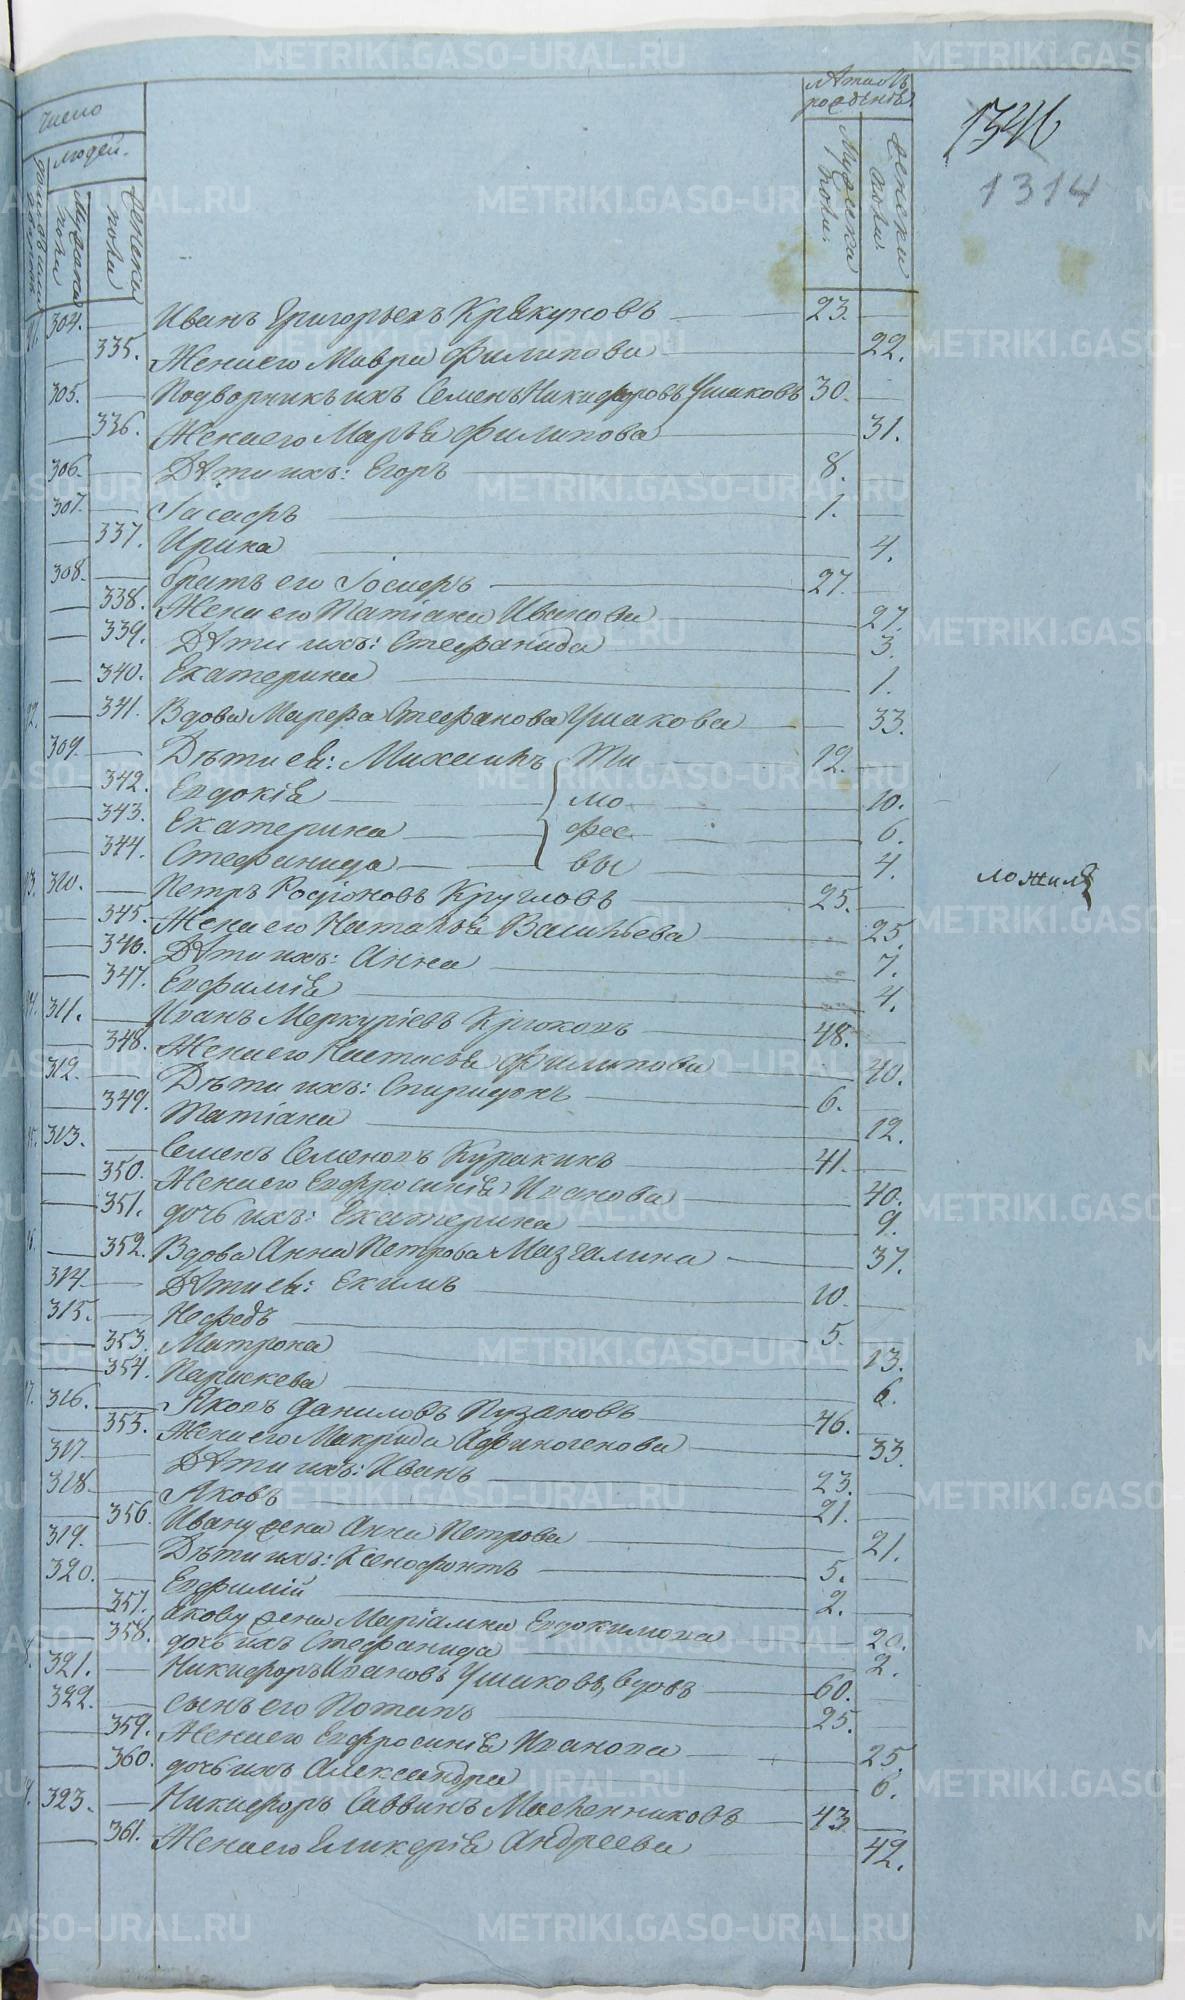 Число
людей.
мужска полу
женска полу
лѣта отъ рожденія
мужеска полу.
женска полу.
1346
1314
304. Иванъ Григорьевъ Кракуновъ 23.
335. Жена его Мавра Филипова 22.
305. Подворникъ ихъ Семенъ Никифоровъ Ушаковъ 30.
336. Жена его Марѳа Филипова 31.
306. Дѣти ихъ: Егоръ 8.
307. Іасафъ 1.
337. Ирина 4.
308. братъ его Іосифъ 27.
338. Жена его Татіана Иванова 27.
339. Дѣти ихъ: Стефанида 3.
340. Екатерина 1.
341. Вдова Марфа Стефанова Ушакова 33.
309. Дѣти ея: Михаилъ Ти 12.
342. Евдокія мо 10.
343. Екатерина фее 6.
344. Стефанида вы 4.
ложиля
310. Петръ Родіоновъ Кругловъ 25.
345. Жена его Наталья Васильева 25.
346. Дѣти ихъ: Анна 7.
347. Евфимія 4.
311. Иванъ Меркуріевъ Крюковъ 48.
348. Жена его Настасья Филипова 40.
312. Дѣти ихъ: Спиридонъ 6.
349. Татіана 12.
313. Семенъ Семеновъ Куракинъ 41.
350. Жена его Евфросинія Иванова 40.
351. дочь ихъ: Екатерина 9.
352. Вдова Анна Петрова Мазгалина 37.
314. Дѣти ея: Екимъ 10.
315. Нефедъ 5.
353. Матрона 13.
354. Параскева 6.
316. Яковъ Даниловъ Пузановъ 46.
355. Жена его Макрида Афиногенова 33.
317. Дѣти ихъ: Иванъ 23.
318. Яковъ 21.
356. Ивану жена Анна Петрова 21.
319. Дѣти ихъ: Ксенофонтъ 5.
320. Евфимій 2.
357. Якову жена Маріамна Евдокимова 20.
358. дочь ихъ Стефанида 2.
321. Никифоръ Ивановъ Ушаковъ, вдовъ 60.
322. сынъ его Потапъ 25.
359. Жена его Евфросинія Иванова 25.
360. дочь ихъ Александра 6.
323. Никифоръ Саввинъ Масленниковъ 43.
361. Жена его Гликерія Андреева 42.
METRIKI.GASO-URAL.RU